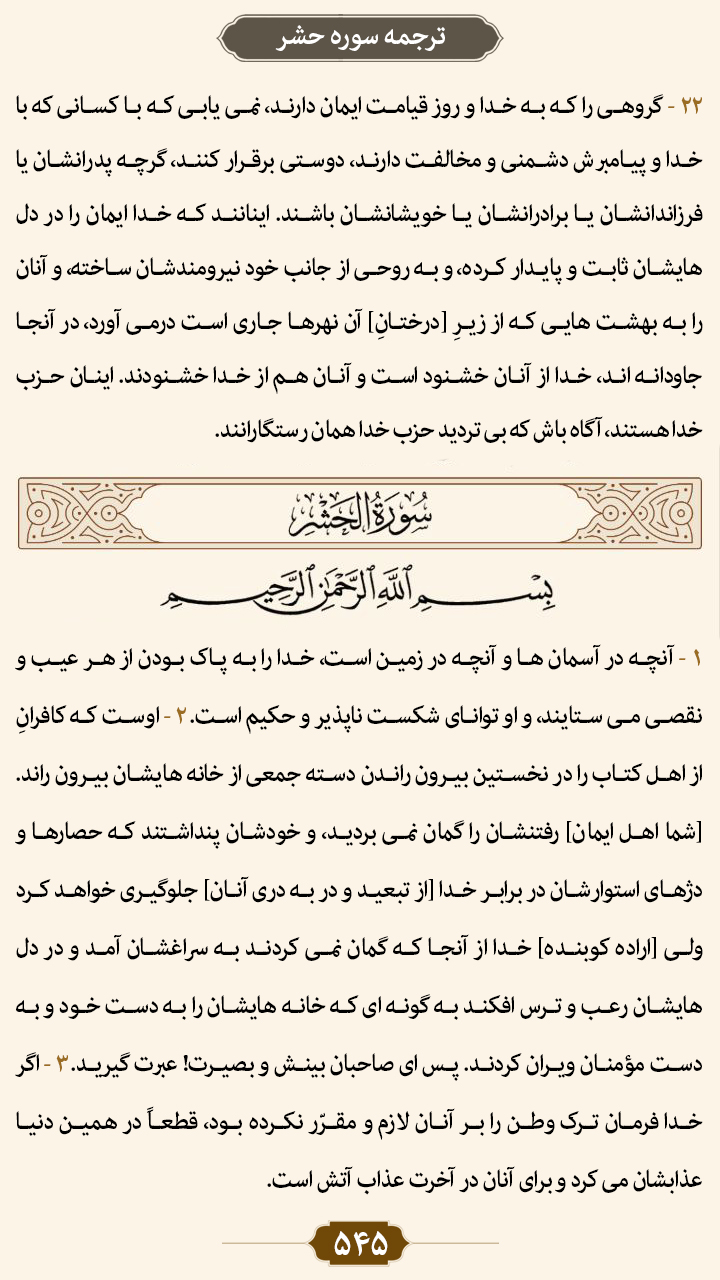 ترجمه سوره حشر
۲۲ - گروهی را که به خدا و روز قیامت ایمان دارند، نمی یابی که با کسانی که با
خدا و پیامبرش دشمنی و مخالفت دارند، دوستی برقرار کنند، گرچه پدرانشان یا
فرزاندانشان یا برادرانشان یا خویشانشان باشند. اینانند که خدا ایمان را در دل
هایشان ثابت و پایدار کرده، و به روحی از جانب خود نیرومندشان ساخته، و آنان
را به بهشت هایی که از زیرِ [درختانِ] آن نهرها جاری است درمی آورد، در آنجا
جاودانه اند، خدا از آنان خشنود است و آنان هم از خدا خشنودند. اینان حزب
خدا هستند، آگاه باش که بی تردید حزب خدا همان رستگارانند.
سُورَةُ الحَشْرِ
بِسْمِ اللَّهِ الرَّحْمَٰنِ الرَّحِيمِ
۱ - آنچه در آسمان ها و آنچه در زمین است، خدا را به پاک بودن از هر عیب و
نقصی می ستایند، و او توانای شکست ناپذیر و حکیم است. ۲ - اوست که کافرانِ
از اهل کتاب را در نخستین بیرون راندن دسته جمعی از خانه هایشان بیرون راند.
[شما اهل ایمان] رفتنشان را گمان نمی بردید، و خودشان پنداشتند که حصارها و
دژهای استوارشان در برابر خدا [از تبعید و در به دری آنان] جلوگیری خواهد کرد
ولی [اراده کوبنده] خدا از آنجا که گمان نمی کردند به سراغشان آمد و در دل
هایشان رعب و ترس افکند به گونه ای که خانه هایشان را به دست خود و به
دست مؤمنان ویران کردند. پس ای صاحبان بینش و بصیرت! عبرت گیرید. ۳ - اگر
خدا فرمان ترک وطن را بر آنان لازم و مقرّر نکرده بود، قطعاً در همین دنیا
عذابشان می کرد و برای آنان در آخرت عذاب آتش است.
۵۴۵